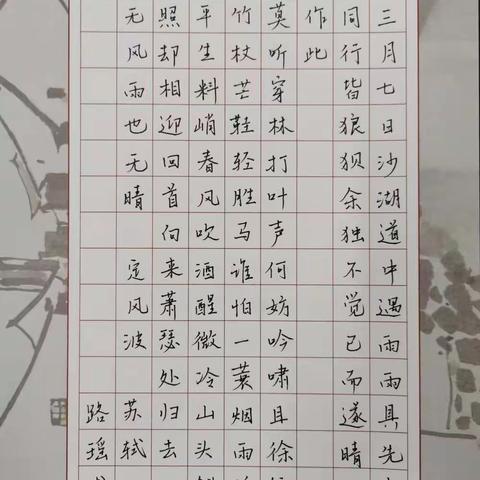 三月七日沙湖道中遇雨雨具先
同行皆狼狈余独不觉已而遂晴
作此
莫听穿林打叶声何妨吟啸且徐
竹杖芒鞋轻胜马谁怕一蓑烟雨
平生料峭春风吹酒醒微冷山头
照却相迎回首向来萧瑟处归去
无风雨也无晴 定风波 苏轼
路瑶